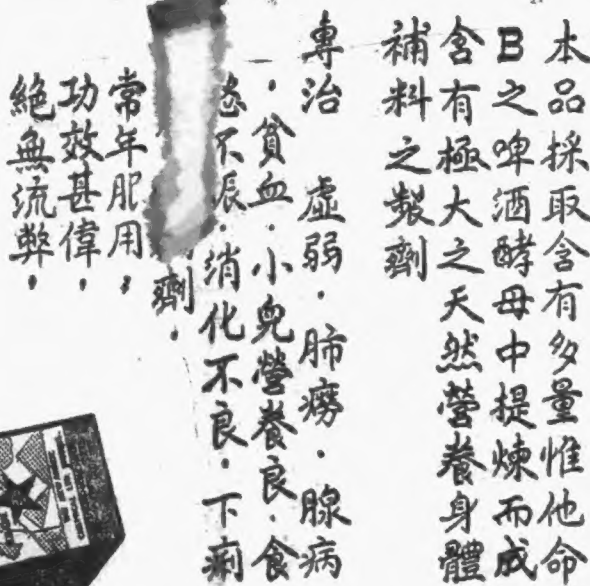 本品採取含有多量惟他命
B之啤酒酵母中提煉而成
含有極大之天然營養身體
補料之製劑
專治 虛弱・肺癆・腺病
・貧血・小兒營養良・食
不 ・消化不良・下痢
劑，
常年服用，
功效甚偉，
絕無流弊，